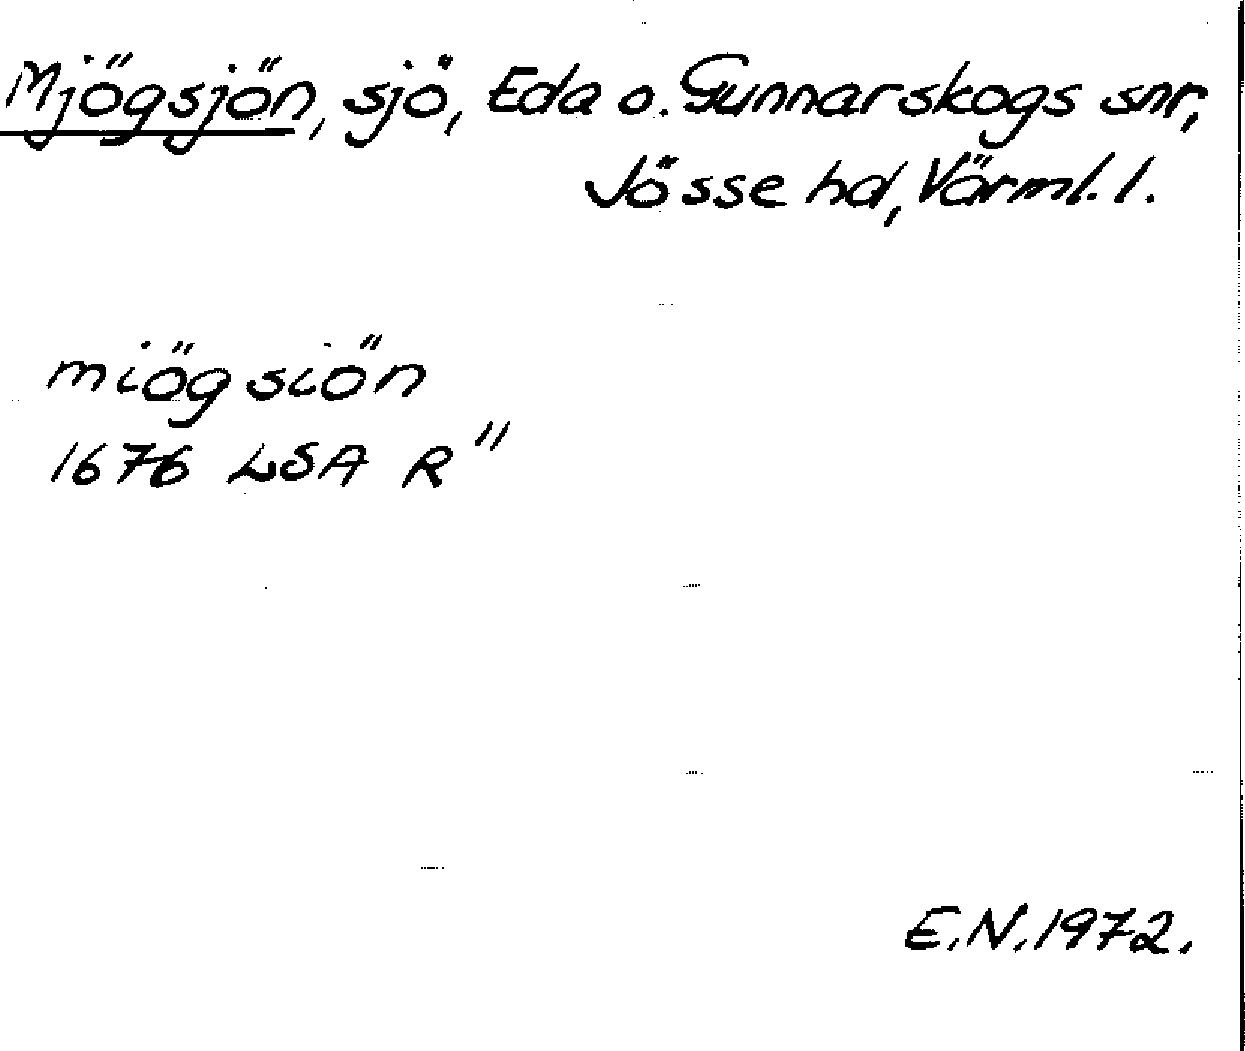 Mjögsjön, sjö, Eda o. Gunnarskogs snr,
Jösse hd, Värml. l.
miögsiön
1676 LSA R"
E.N. 1972.